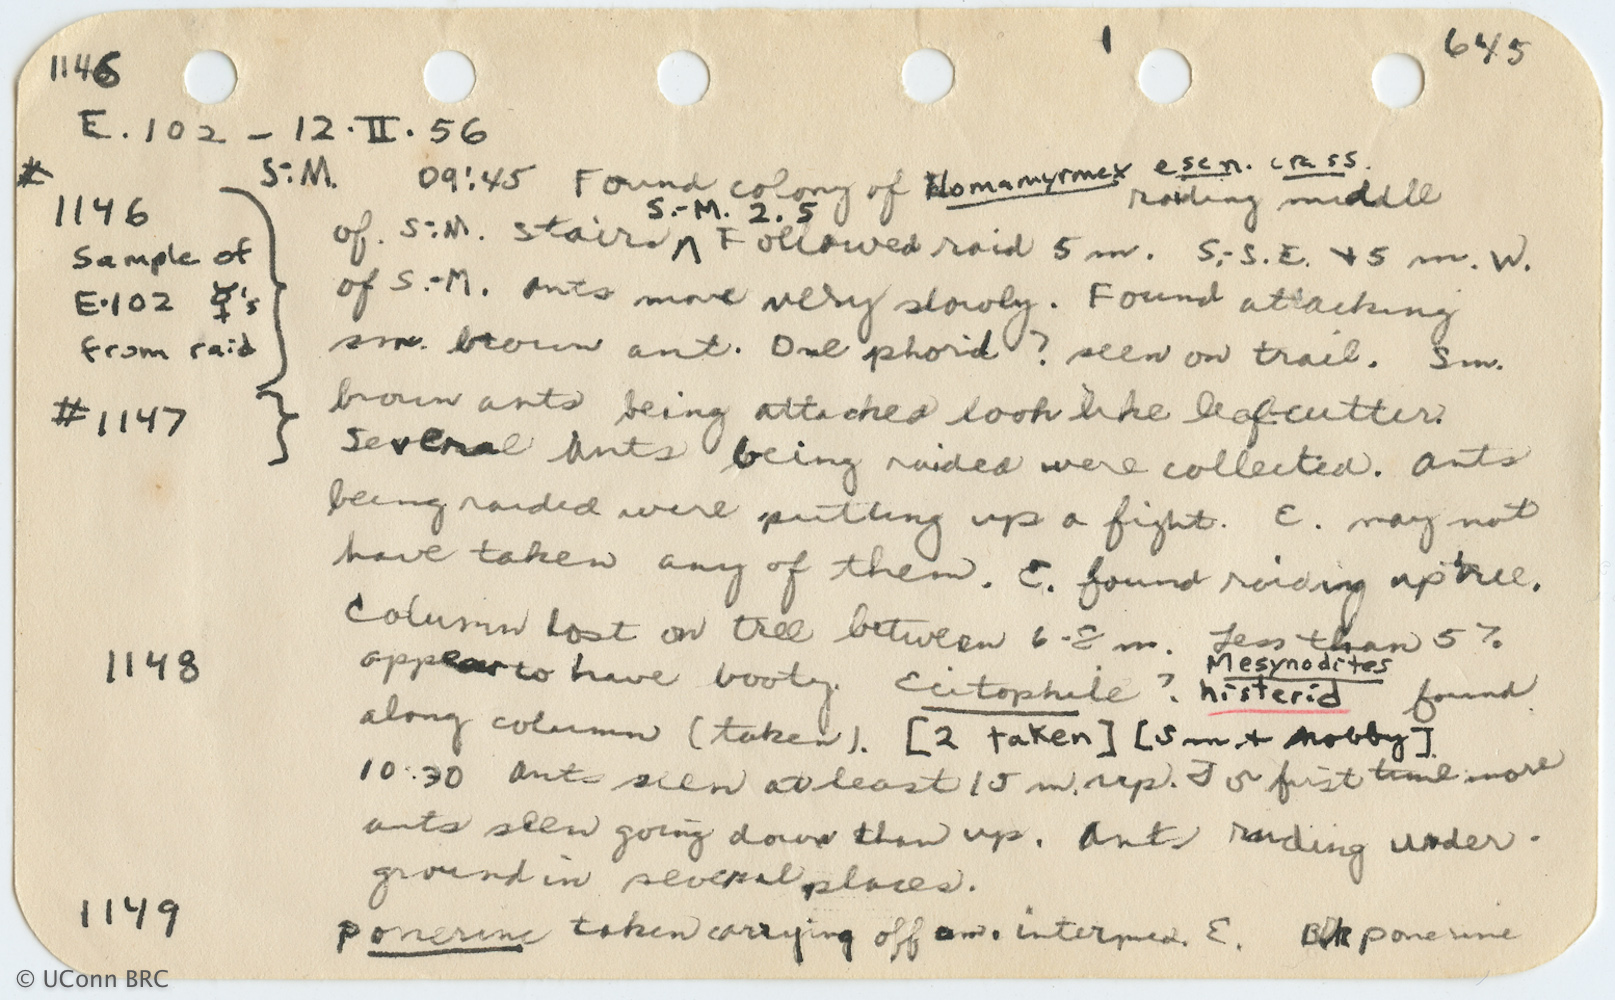 1146
1
645
E. 102 - 12.II.56
#
S.-M. 09:45 Found colony of Nomamyrmex esen. crass. raiding middle
1146
Sample of
E.102 ☿'s
from raid
S.-M. 2.5
of S.-M. stairs ∧ Followed raid 5 m. S.-S.E. + 5 m. W.
of S.-M. Ants move very slowly. Found attacking
sm. brown ant. One phorid ? seen on trail. Sm.
#1147
brown ants being attacked look like leafcutter.
Several Ants being raided were collected. Ants
being raided were putting up a fight. E. may not
have taken any of them. E. found raiding up tree.
Column lost on tree between 6-8 m. Less than 5%
1148
appear to have booty. Ecitophile ? Mesynodites histerid found
along column (taken). [2 taken] [sm. + knobby]
10:30 Ants seen at least 15 m. up. For first time more
ants seen going down than up. Ants raiding under-
ground in several places.
1149
ponerine taken carrying off sm. intermed. E. Blk ponerine
© UConn BRC